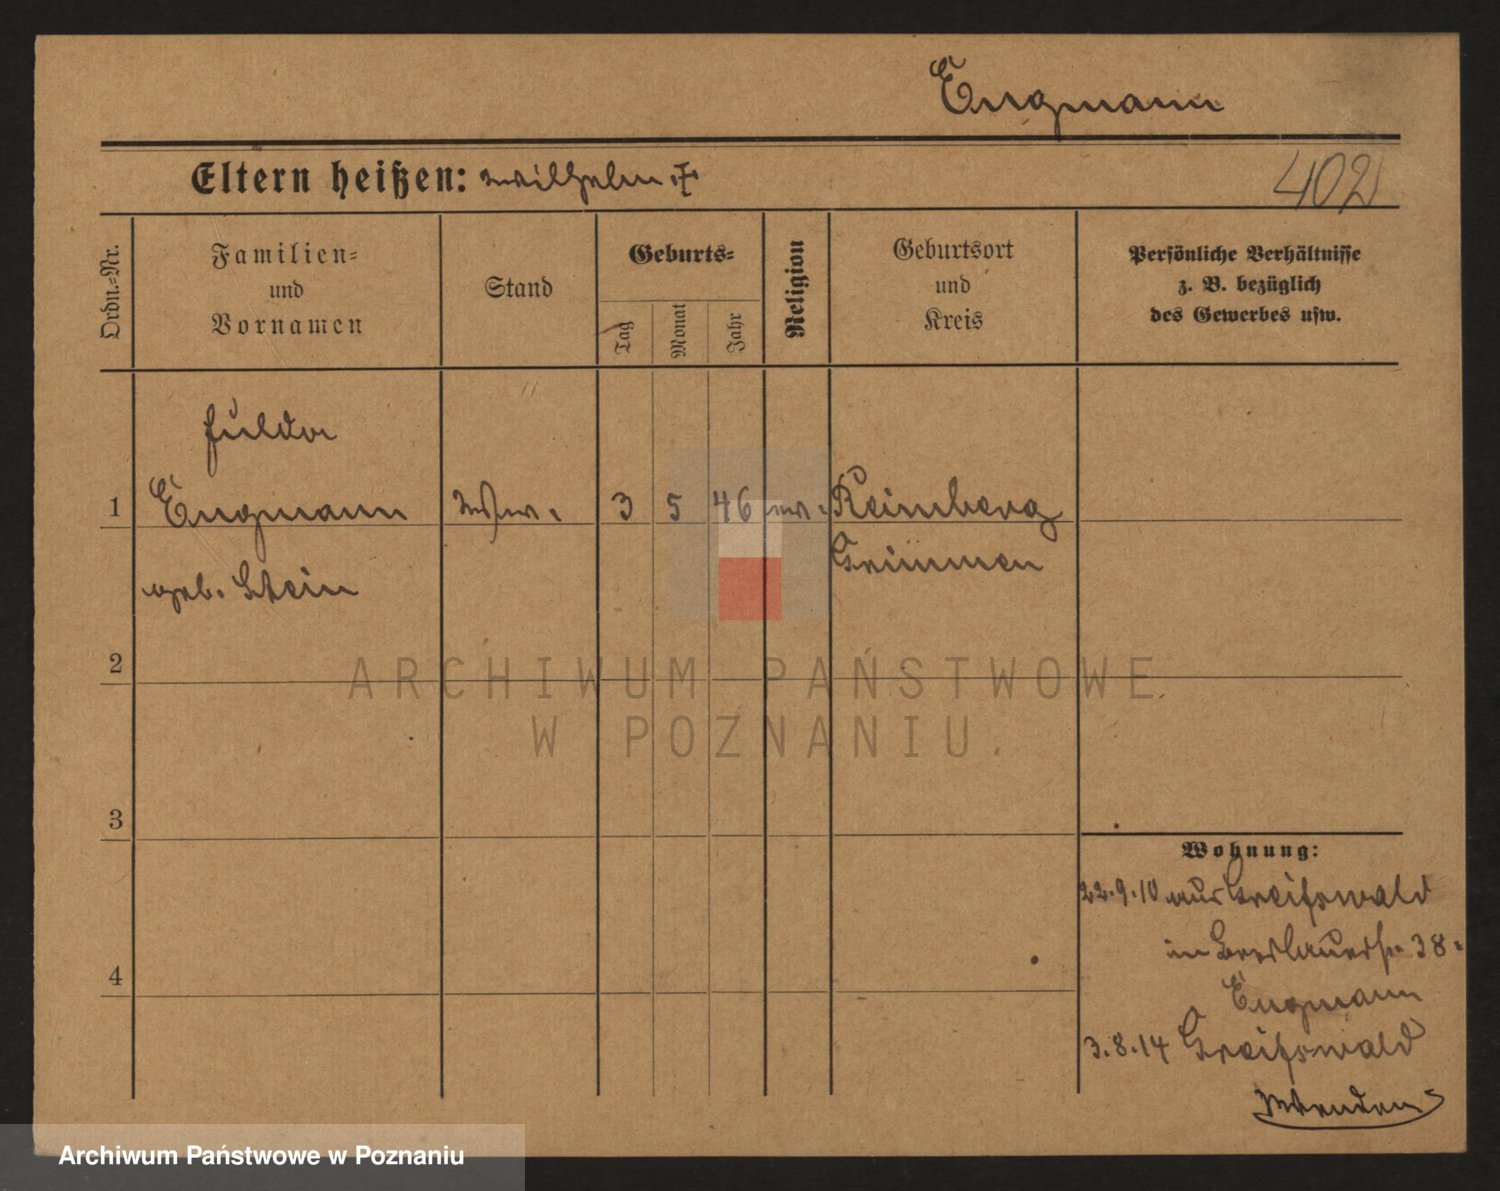 Engmann
Eltern heißen: Wilhelm †
402
Ordn.-Nr.
Familien-
und
Vornamen
Stand
Geburts-
Tag
Monat
Jahr
Religion
Geburtsort
und
Kreis
Persönliche Verhältnisse
z. B. bezüglich
des Gewerbes usw.
Hulda
1 Engmann Wwe. 3 5 46 ev. Reinberg
Grimmen
geb. Stein
2
3
4
Wohnung:
22.9.10 aus Greifswald
in Breslauerstr. 38.
Engmann
3.8.14 Greifswald
ARCHIWUM PAŃSTWOWE
W POZNANIU
Archiwum Państwowe w Poznaniu